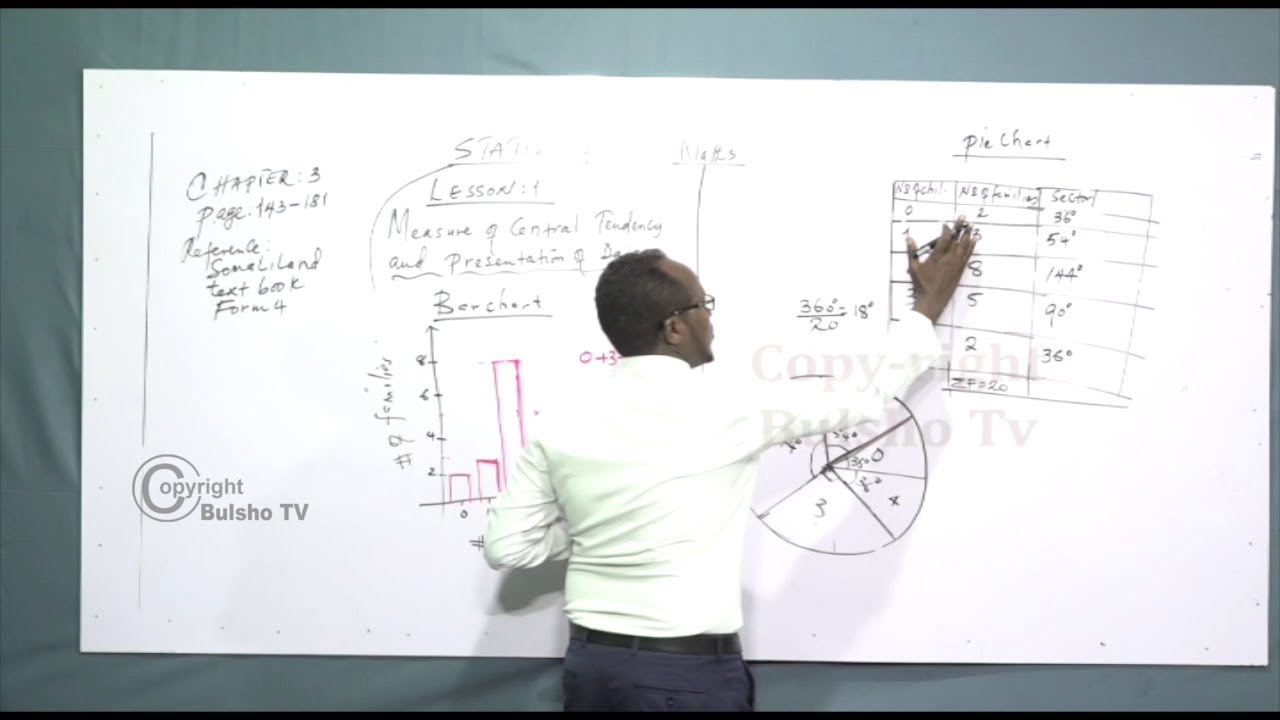 CHAPTER: 3
page: 143-181
Reference:
Somaliland
text book
Form 4
STATIS
Maths
LESSON: 1
Measure of Central Tendency
and presentation of Da
Bar chart
# of families
8
6
4
2
0
#
0+3
pie chart
No of chil. No of families Sector
0 2 36°
1 3 54°
8 144°
3 5 90°
2 36°
ΣF=20
360° = 18°
20
54°
36°
0
3
4
Copy-right
Bulsho Tv
Copyright
Bulsho TV